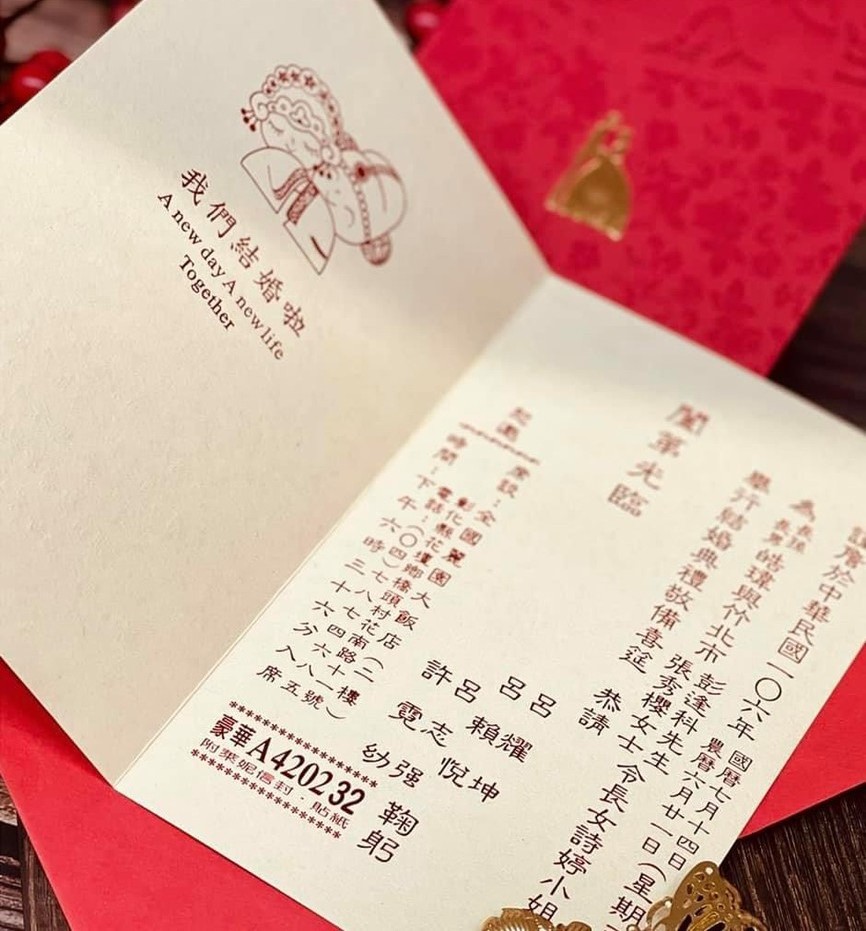 我們結婚啦
A new day A new life
Together
謹詹於中華民國一〇六年
國曆七月十四日
農曆六月廿一日(星期
為長孫
長男皓瑋與竹北市
彭逢科先生
張秀櫻女士
令長女詩婷小姐
舉行結婚典禮敬備喜筵
恭請
闔第光臨
呂耀坤
呂賴悅
呂志強
許霓幼
鞠躬
恕邀
席設:全國麗園大飯店(二樓)
彰化縣花壇鄉橋頭村花南路
電話:(〇四)七八七四六八八
時間:下午六時三十六分入席
********************
豪華A420232
附萊妮信封.貼紙
********************